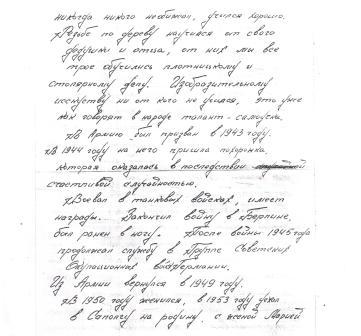 никогда никого необижал, учился хорошо.
Резьбе по дереву научился от своего
дедушки и отца, от них мы все
трое обучились плотницкому и
столярному делу. Изобразительному
исскуству ни от кого не учился, это уже
как говорят в народе талант - самоучка.
В Армию был призван в 1943 году.
В 1944 году на него пришла похоронка,
которая оказалась в последствии
счастливой случайностью.
Воевал в танковых войсках, имеет
награды. Закончил войну в Берлине,
был ранен в ногу. После войны 1945 года
продолжал службу в Группе Советских
Окупационных войск Германии.
Из Армии вернулся в 1949 году.
В 1950 году женился, в 1953 году уехал
в на родину, с женой Марией